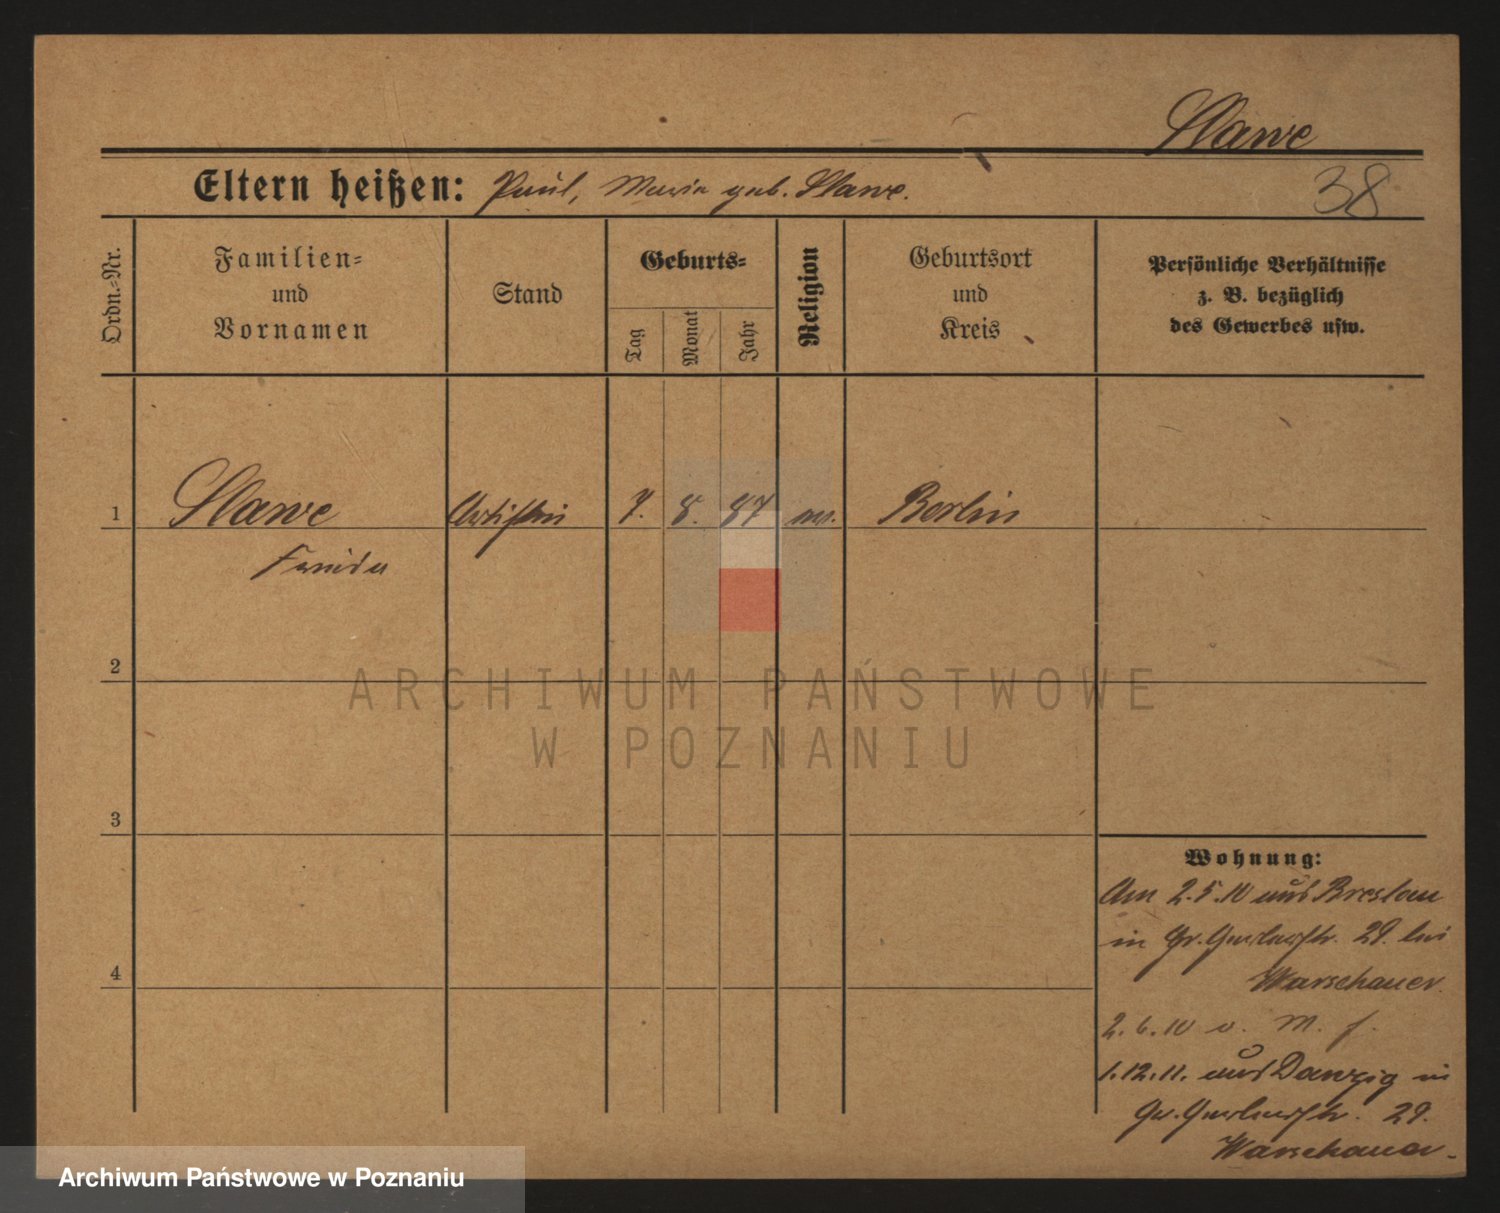 Slawe
Eltern heißen: Paul, Maria geb. Slawe.
38
Ordn.-Nr.
Familien-
und
Vornamen
Stand
Geburts-
Tag
Monat
Jahr
Religion
Geburtsort
und
Kreis
Persönliche Verhältnisse
z. B. bezüglich
des Gewerbes usw.
1
Slawe Artistin 7. 8. 87 Berlin
Frieda
2
ARCHIWUM PAŃSTWOWE
W POZNANIU
3
Wohnung:
Am 2.5.10 aus Breslau
in Gr. Gerberstr. 29. bei
4
Warschauer.
2.6.10 v. M. f.
1.12.11. aus Danzig in
Gr. Gerberstr. 29.
Warschauer.
Archiwum Państwowe w Poznaniu